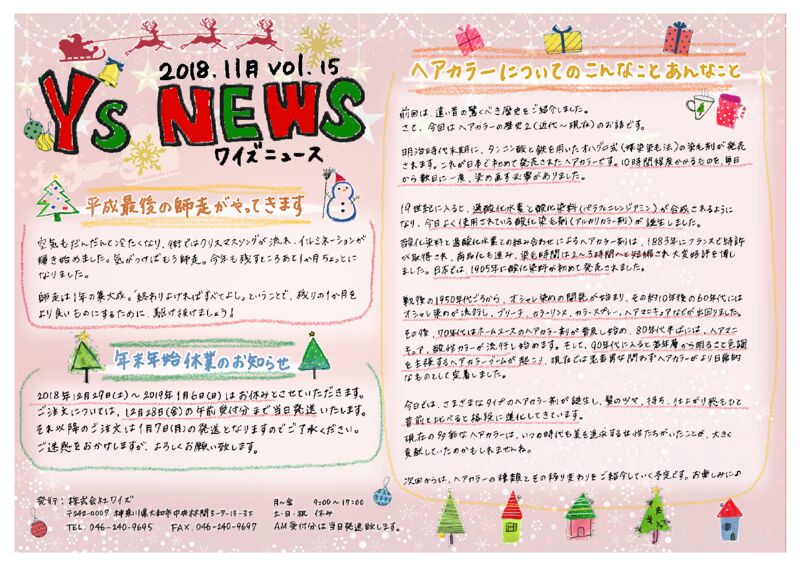 2018.11月 vol.15
Ys NEWS
ワイズニュース
平成最後の師走がやってきます
空気もだんだんと冷たくなり、街ではクリスマスソングが流れ、イルミネーションが
輝き始めました。気がつけばもう師走。今年も残すところあと1か月ちょっとに
なりました。
師走は1年の集大成。「終わりよければすべてよし」ということで、残りの1か月を
より良いものにするために、駆け抜けましょう!
年末年始休業のお知らせ
2018年12月29日(土)~2019年1月6日(日)はお休みとさせていただきます。
ご注文については、12月28日(金)の午前受付分まで当日発送いたします。
それ以降のご注文は1月7日(月)の発送となりますのでご了承ください。
ご迷惑をおかけしますが、よろしくお願い致します。
発行:株式会社ワイズ
〒242-0007 神奈川県大和市中央林間3-7-13-3F
TEL.046-240-9695 FAX.046-240-9697
月~金 9:00~17:00
土・日・祝 休み
AM受付分は当日発送致します。
ヘアカラーについてのこんなことあんなこと
前回は、遠い昔の驚くべき歴史をご紹介しました。
さて、今回はヘアカラーの歴史2(近代~現在)のお話です。
明治時代末期に、タンニン酸と鉄を用いたオハグロ式(媒染染毛法)の染毛剤が発売
されます。これが日本で初めて発売されたヘアカラーです。10時間程度かかるものを、毎日
から数日に一度、染め直す必要がありました。
19世紀に入ると、過酸化水素と酸化染料(パラフェニレンジアミン)が合成されるように
なり、今日よく使用されている酸化染毛剤(アルカリカラー剤)が誕生しました。
酸化染料と過酸化水素との組み合わせによるヘアカラー剤は、1883年にフランスで特許
が取得され、商品化も進み、染毛時間は2~3時間へと短縮され大変好評を博し
ました。日本では、1905年に酸化染料が初めて発売されました。
戦後の1950年代ごろから、オシャレ染めの開発が始まり、その約10年後の60年代には
オシャレ染めが流行し、ブリーチ、カラーリンス、カラースプレー、ヘアマニキュアなどが出回りました。
その後、70年代はホームユースのヘアカラー剤が普及し始め、80年代半ばには、ヘアマニ
キュア、酸性カラーが流行し始めます。そして、90年代に入ると若年層から明るい色調
を主張するヘアカラーブームが起こり、現在では老若男女問わずヘアカラーがより日常的
なものとして定着しました。
今日では、さまざまなタイプのヘアカラー剤が誕生し、髪のツヤ、持ち、仕上がり感もひと
昔前と比べると格段に進化してきています。
現在の多彩なヘアカラーは、いつの時代も美を追求する女性たちがいたことが、大きく
貢献していたのかもしれませんね。
次回からは、ヘアカラーの種類とその移り変わりをご紹介していく予定です。お楽しみに♪